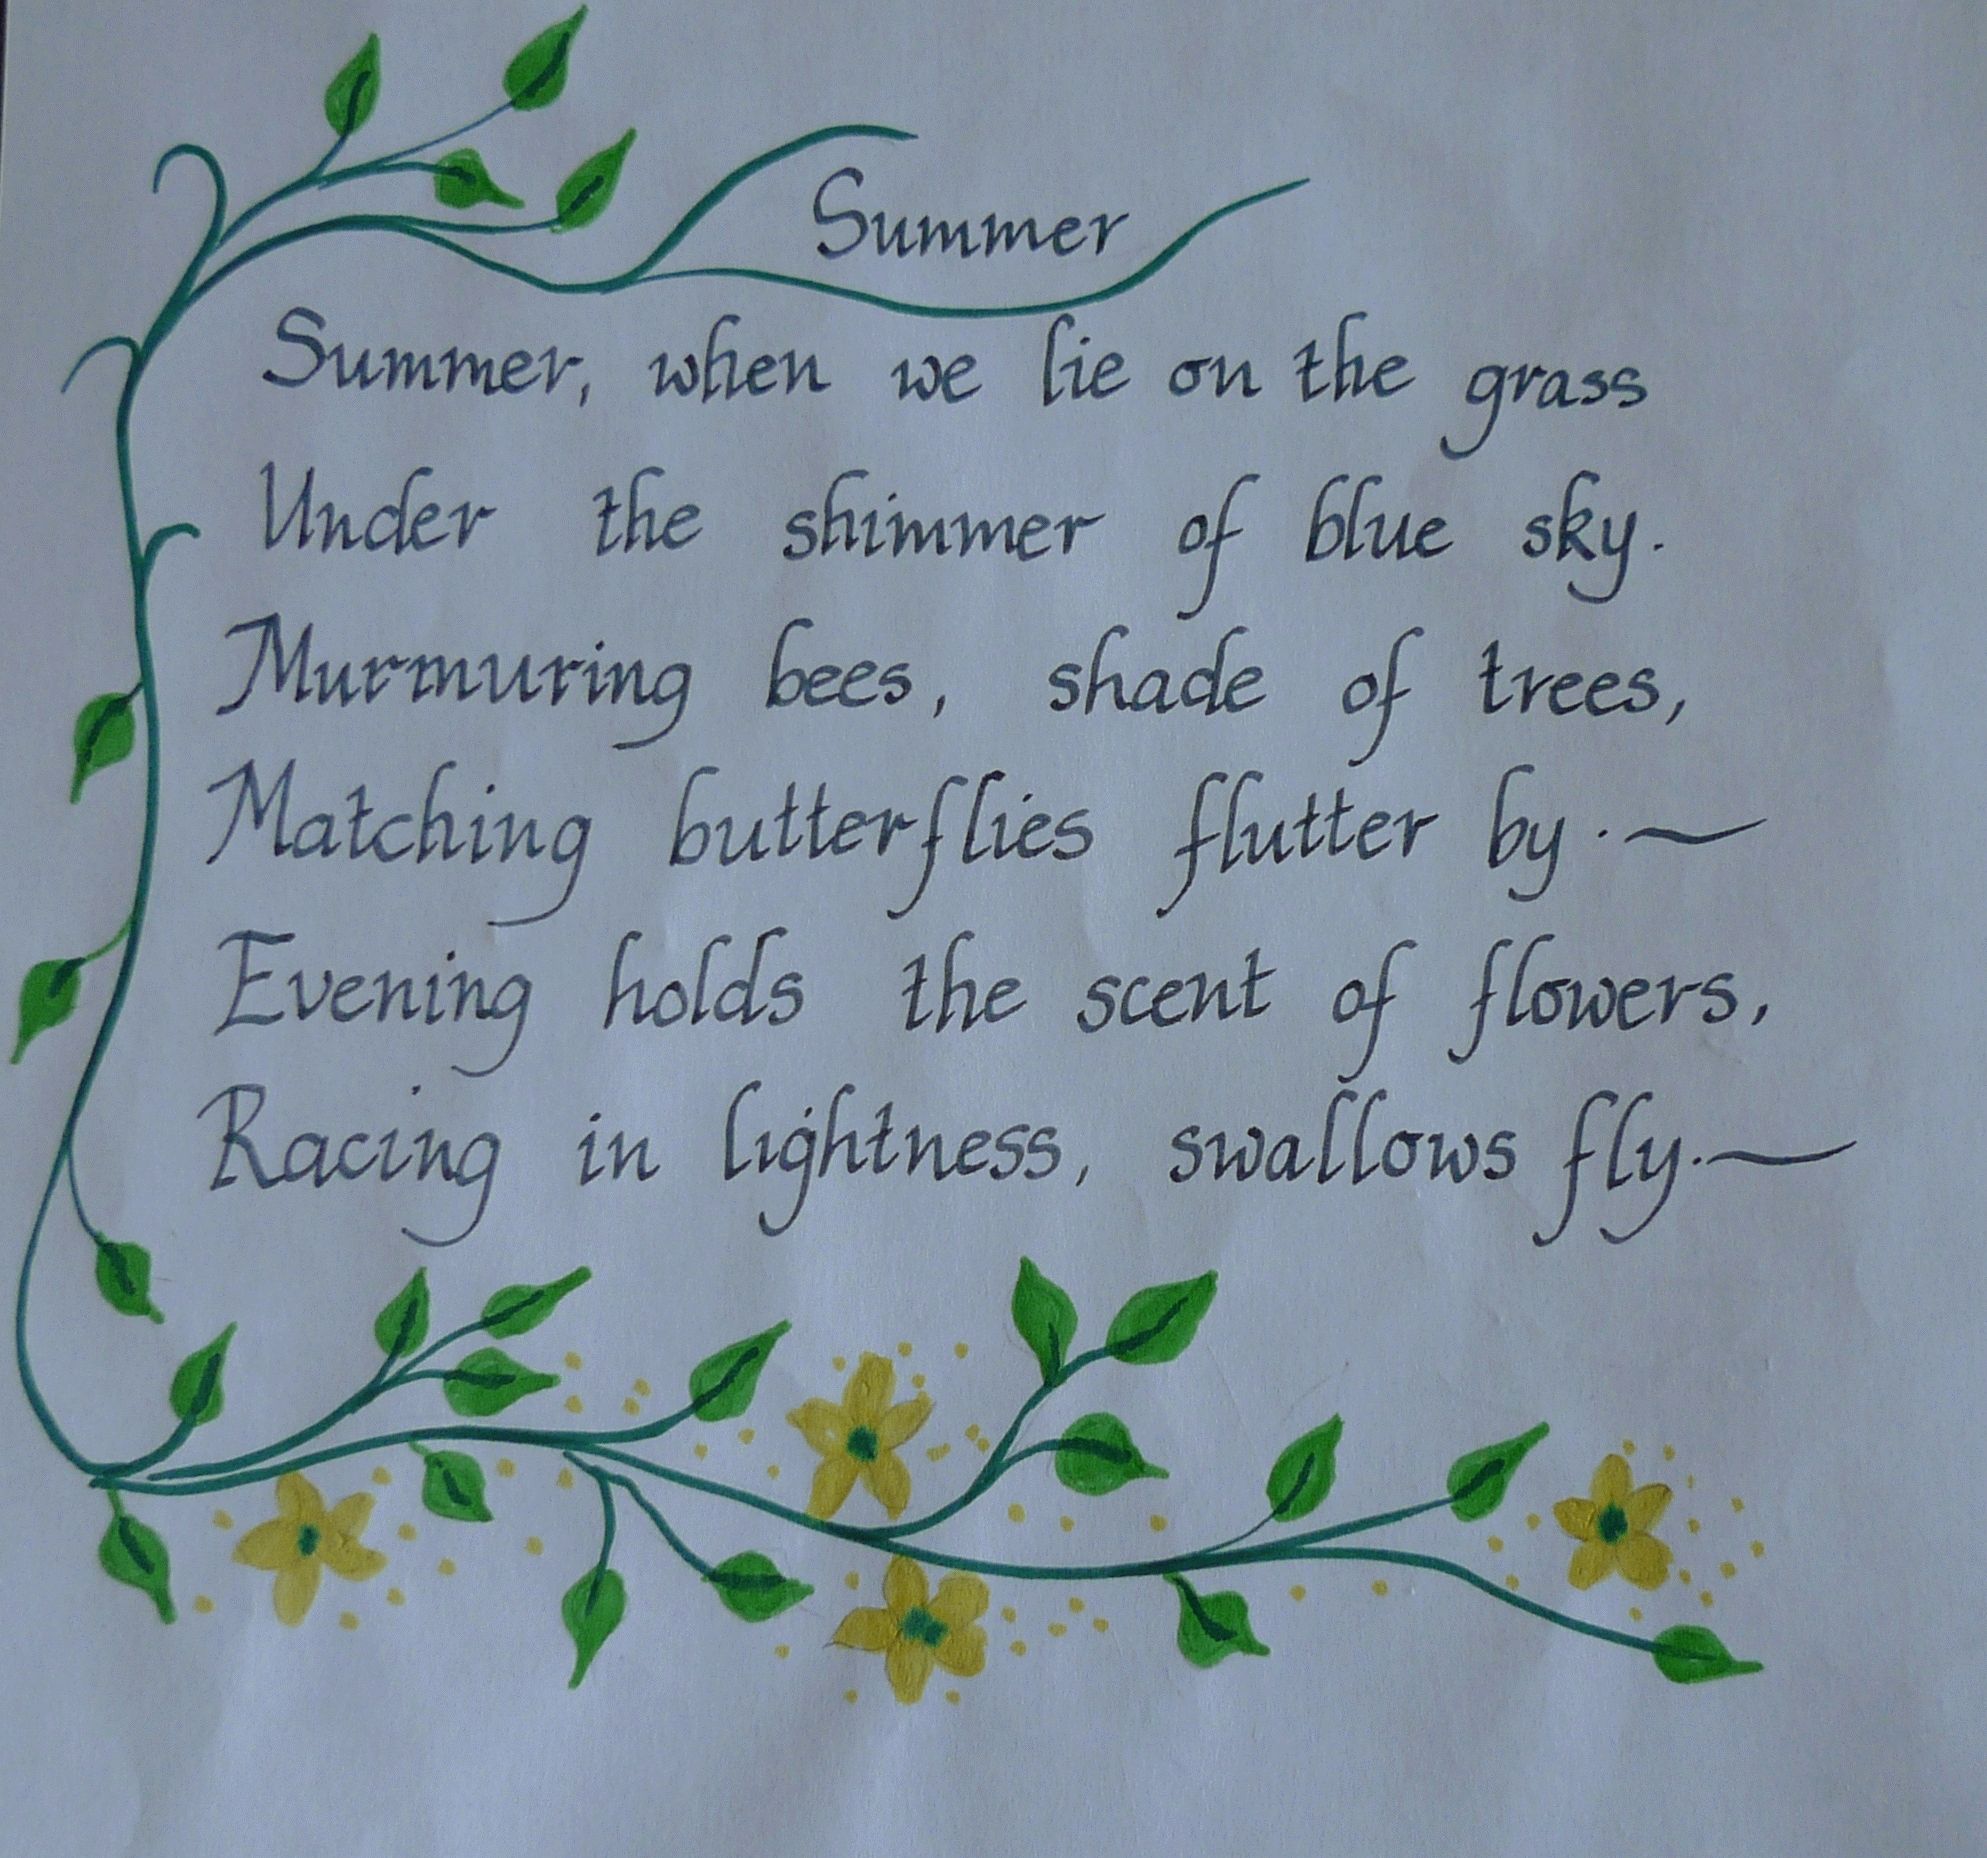 Summer
Summer, when we lie on the grass
Under the shimmer of blue sky.
Murmuring bees, shade of trees,
Matching butterflies flutter by. ~
Evening holds the scent of flowers,
Racing in lightness, swallows fly. ~